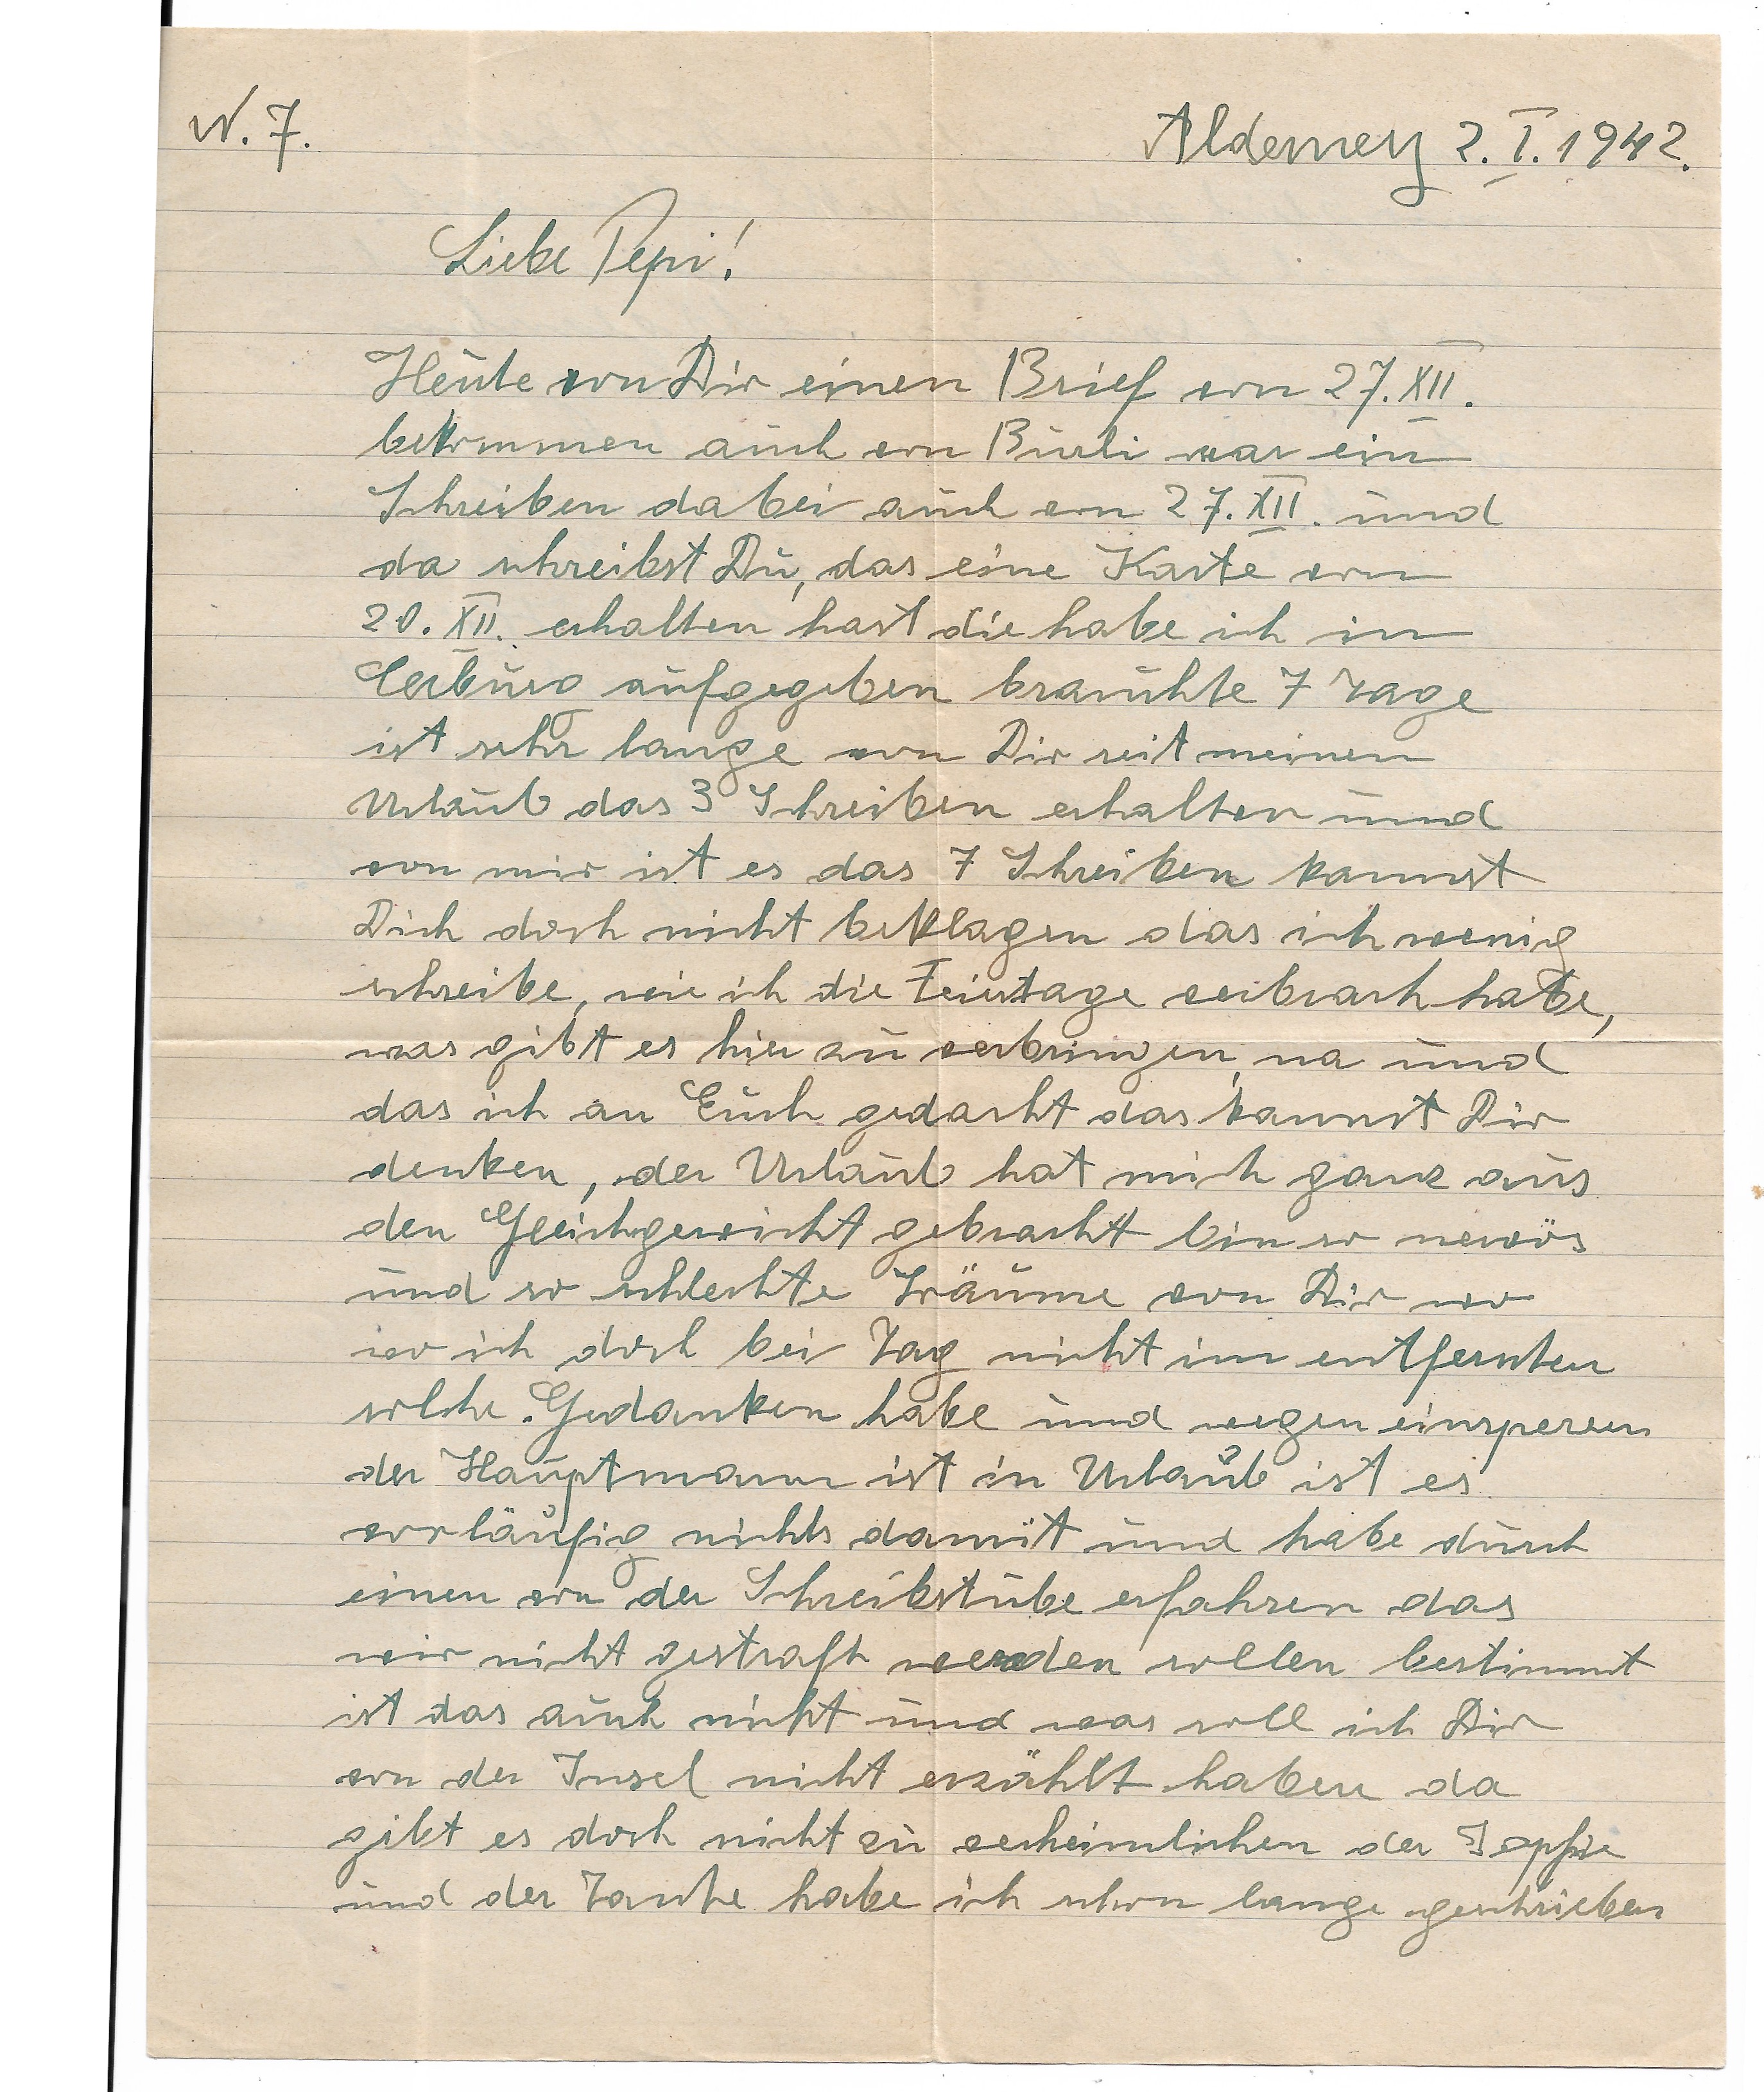 N. 7.
Alderney 2. I. 1942.
Liebe Pepi!
Heute von Dir einen Brief von 27. XII.
bekommen auch von Burli war ein
Schreiben dabei auch von 27. XII. und
da schreibst Du, das eine Karte vom
20. XII. erhalten hast die habe ich in
Cerburo aufgegeben brauchte 7 Tage
ist sehr lange von Dir seit meinen
Urlaub das 3 Schreiben erhalten und
von mir ist es das 7 Schreiben kannst
Dich doch nicht beklagen das ich wenig
schreibe, wie ich die Feiertage verbrach habe,
was gibt es hier zu verbringen, na und
das ich an Euch gedacht das kannst Dir
denken, der Urlaub hat mich ganz aus
den Gleichgewicht gebracht bin so nervös
und so schlechte Träume von Dir wo
wo ich doch bei Tag nicht im entfernten
solche Gedanken habe und wegen einsperren
der Hauptmann ist in Urlaub ist es
vorläufig nichts damit und habe durch
einen von der Schreibstube erfahren das
wir nicht gestraft werden sollen bestimmt
ist das auch nicht und was soll ich Dir
von der Insel nicht erzählt haben da
gibt es doch nicht zu verheimlichen der Sophie
und der Tante habe ich schon lange geschrieben